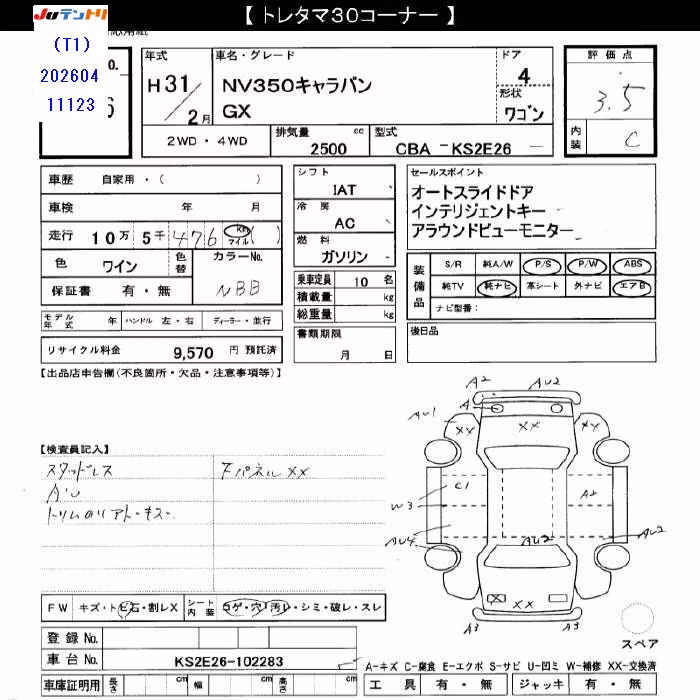 【 トレタマ30コーナー 】
Juテントリ
(T1)
202604
11123
No.
年式
H 31/2月
車名・グレード
NV350キャラバン
GX
ドア
4
形状
ワゴン
評価点
3.5
内装
C
2WD ・ 4WD
排気量 cc
2500
型式
CBA - KS2E26 -
車歴 自家用・( )
車検 年 月
走行 10万 5千476 Km マイル ( )
色 ワイン 色替 カラーNo. NBB
保証書 有・無
シフト
IAT
冷房
AC
燃料
ガソリン
乗車定員 10 名
積載量 kg
総重量 kg
書類期限
月 日
セールスポイント
オートスライドドア
インテリジェントキー
アラウンドビューモニター
装備品
S/R 純A/W P/S P/W ABS
純TV 純ナビ 革シート 外ナビ エアB
ナビ型番:
後日品
モデル年式 年 ハンドル 左・右 ディーラー・並行
リサイクル料金 9,570 円 預託済
【出品店申告欄(不良箇所・欠品・注意事項等)】
【検査員記入】
スタッドレス
Fパネル XX
A'U
A2
AU2
A
AU1
XX
XX
XX
C1
A2
W3
AU4
AU2
AU2
X
XX
A3
A3
スペア
FW キズ・トビ石・割レX シート内装 コゲ・穴・汚レ・シミ・破レ・スレ
登録 No.
車台 No. KS2E26-102283
車庫証明用 長さ cm 幅 cm 高さ cm
A-キズ C-腐食 E-エクボ S-サビ U-凹ミ W-補修 XX-交換済
工具 有・無 ジャッキ 有・無